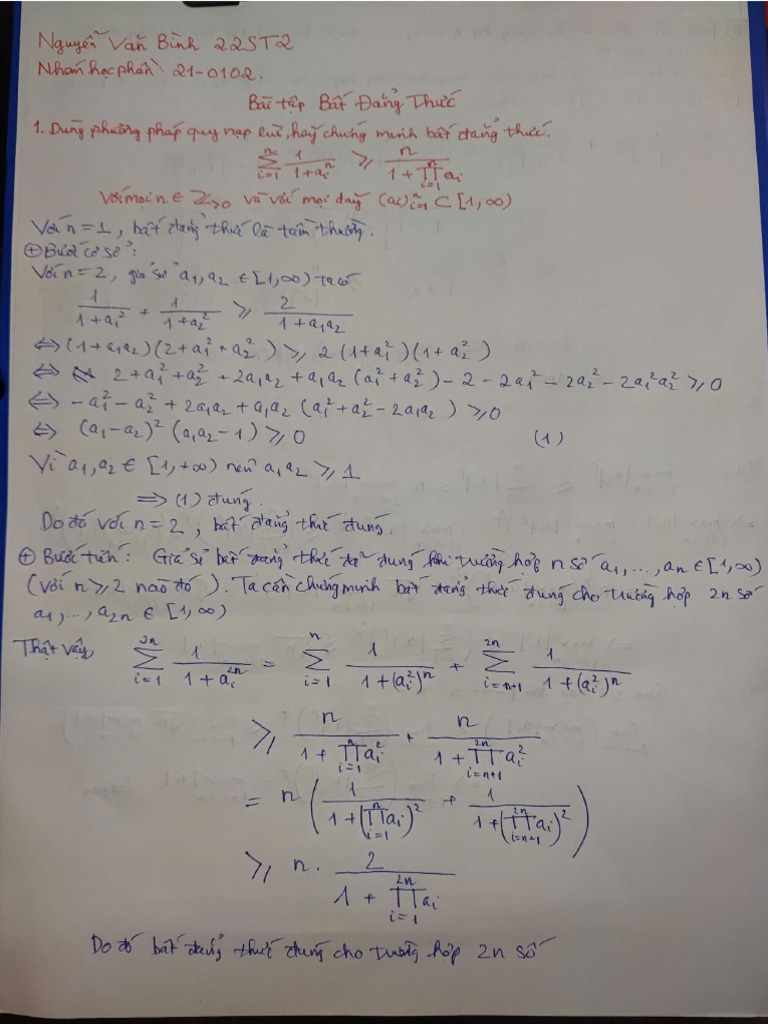 Nguyễn Văn Bình 22ST2
Nhóm học phần: 21-0102.
Bài tập Bất Đẳng Thức
1. Dùng phương pháp quy nạp lùi, hãy chứng minh bất đẳng thức.
\sum_{i=1}^{n} \frac{1}{1+a_i^n} \geq \frac{n}{1+\prod_{i=1}^{n} a_i}
Với mọi n ∈ ℤ_{>0} và với mọi dãy (a_i)_{i=1}^{n} ⊂ [1, ∞)
Với n = 1, bất đẳng thức là tầm thường.
⊕ Bước cơ sở:
Với n = 2, giả sử a_1, a_2 ∈ [1, ∞) ta có
\frac{1}{1+a_1^2} + \frac{1}{1+a_2^2} \geq \frac{2}{1+a_1a_2}
⇔ (1+a_1a_2)(2+a_1^2+a_2^2) ≥ 2(1+a_1^2)(1+a_2^2)
⇔ 2+a_1^2+a_2^2+2a_1a_2+a_1a_2(a_1^2+a_2^2)-2-2a_1^2-2a_2^2-2a_1^2a_2^2 ≥ 0
⇔ -a_1^2-a_2^2+2a_1a_2+a_1a_2(a_1^2+a_2^2-2a_1a_2) ≥ 0
⇔ (a_1-a_2)^2(a_1a_2-1) ≥ 0 (1)
Vì a_1, a_2 ∈ [1, +∞) nên a_1a_2 ≥ 1
⇒ (1) đúng.
Do đó với n = 2, bất đẳng thức đúng.
⊕ Bước tiến: Giả sử bất đẳng thức đã đúng khi trường hợp n số a_1, ..., a_n ∈ [1, ∞)
(với n ≥ 2 nào đó). Ta cần chứng minh bất đẳng thức đúng cho trường hợp 2n số
a_1, ..., a_{2n} ∈ [1, ∞)
Thật vậy, \sum_{i=1}^{2n} \frac{1}{1+a_i^{2n}} = \sum_{i=1}^{n} \frac{1}{1+(a_i^2)^n} + \sum_{i=n+1}^{2n} \frac{1}{1+(a_i^2)^n}
\geq \frac{n}{1+\prod_{i=1}^{n} a_i^2} + \frac{n}{1+\prod_{i=n+1}^{2n} a_i^2}
= n \left( \frac{1}{1+(\prod_{i=1}^{n} a_i)^2} + \frac{1}{1+(\prod_{i=n+1}^{2n} a_i)^2} \right)
\geq n \cdot \frac{2}{1+\prod_{i=1}^{2n} a_i}
Do đó bất đẳng thức đúng cho trường hợp 2n số